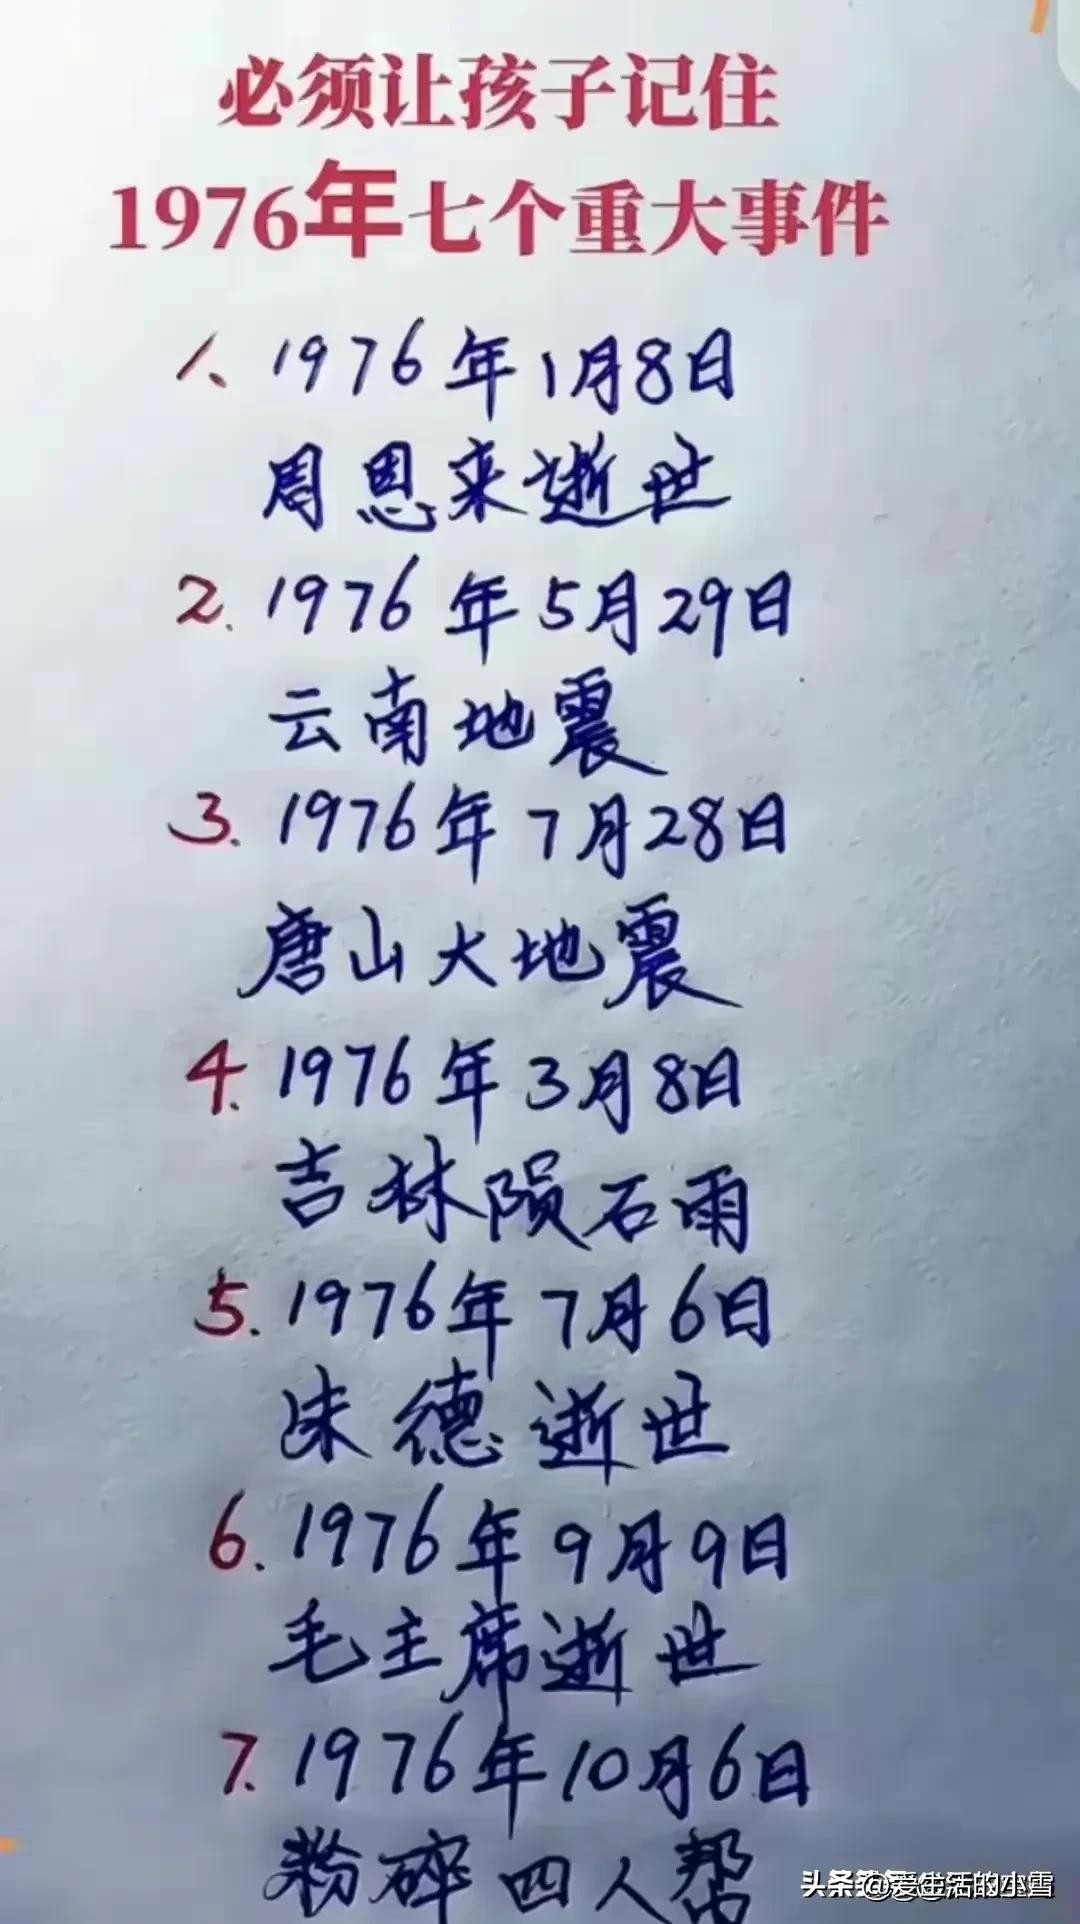 必须让孩子记住
1976年七个重大事件
1、1976年1月8日
周恩来逝世
2.1976年5月29日
云南地震
3.1976年7月28日
唐山大地震
4.1976年3月8日
吉林陨石雨
5.1976年7月6日
朱德逝世
6.1976年9月9日
毛主席逝世
7.1976年10月6日
粉碎四人帮
头条 @爱生活的小雪